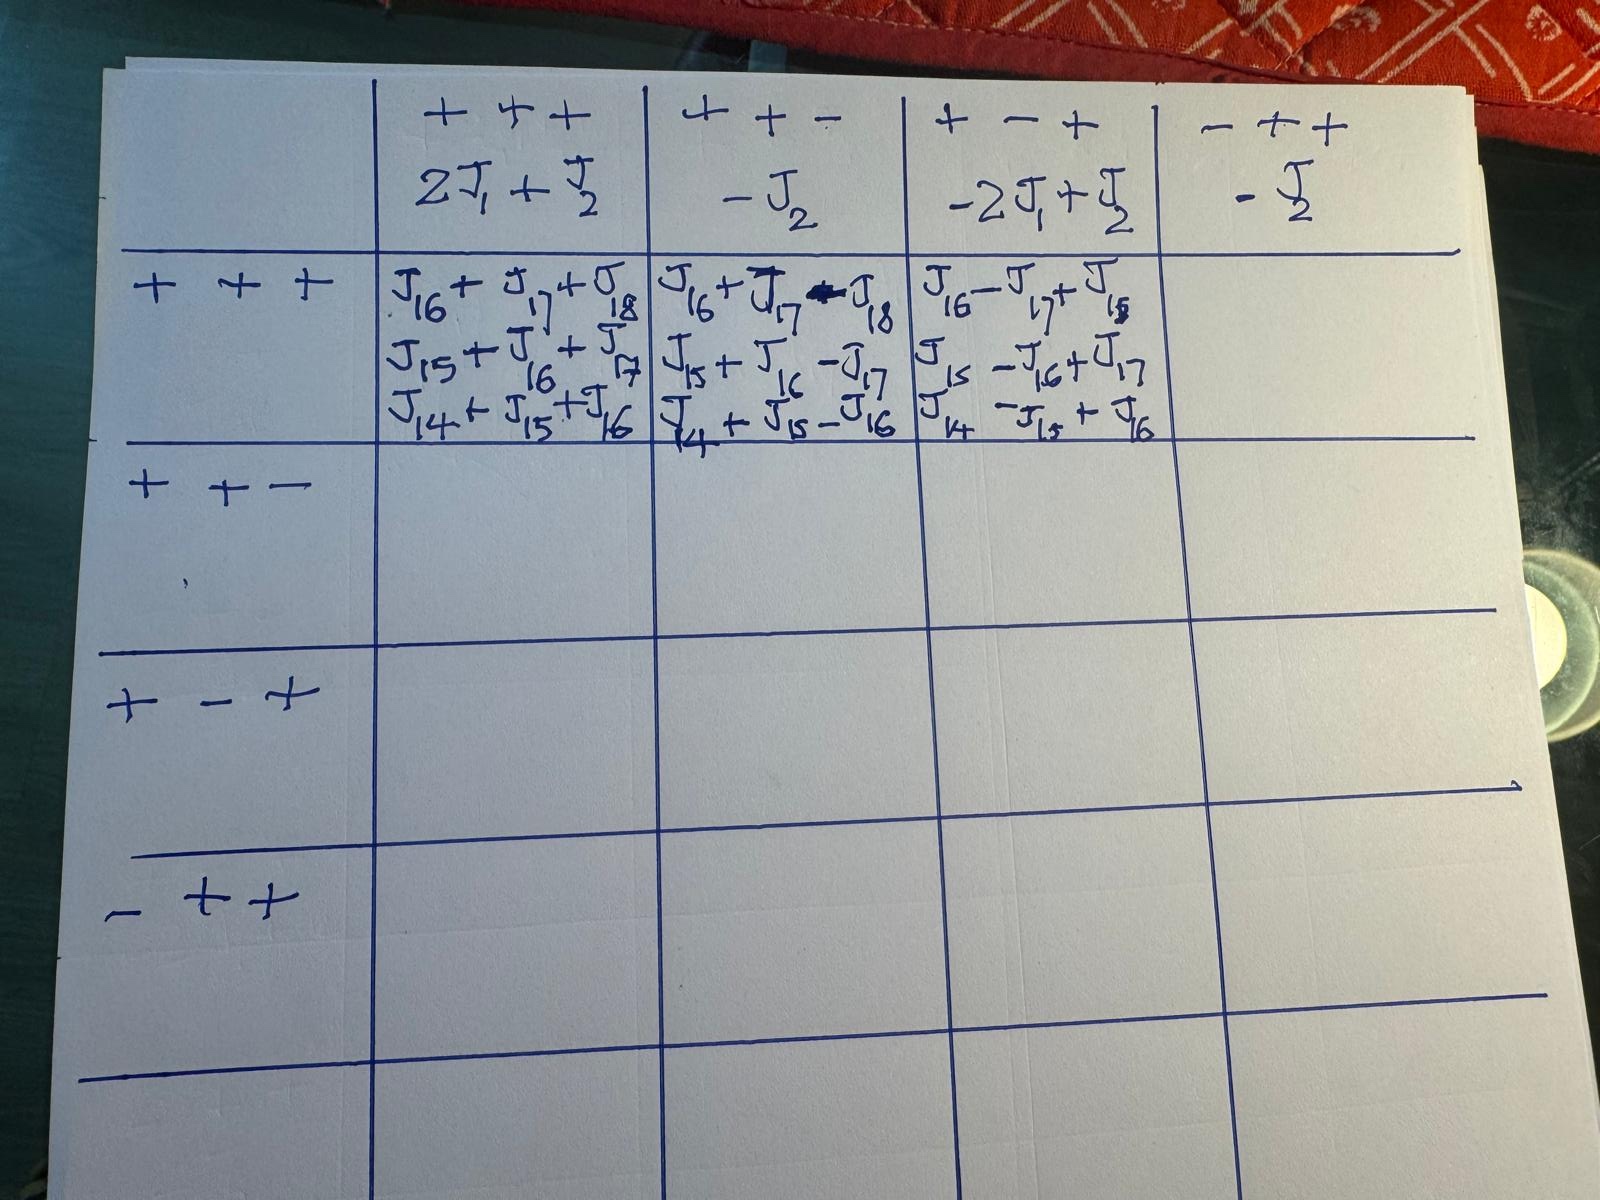 + + + + + - + - + - + +
2J₁ + J₂ - J₂ -2J₁ + J₂ - J₂
+ + + J₁₆ + J₁₇ + J₁₈ J₁₆ + J₁₇ - J₁₈ J₁₆ - J₁₇ + J₁₈
J₁₅ + J₁₆ + J₁₇ J₁₅ + J₁₆ - J₁₇ J₁₅ - J₁₆ + J₁₇
J₁₄ + J₁₅ + J₁₆ J₁₄ + J₁₅ - J₁₆ J₁₄ - J₁₅ + J₁₆
+ + -
+ - +
- + +